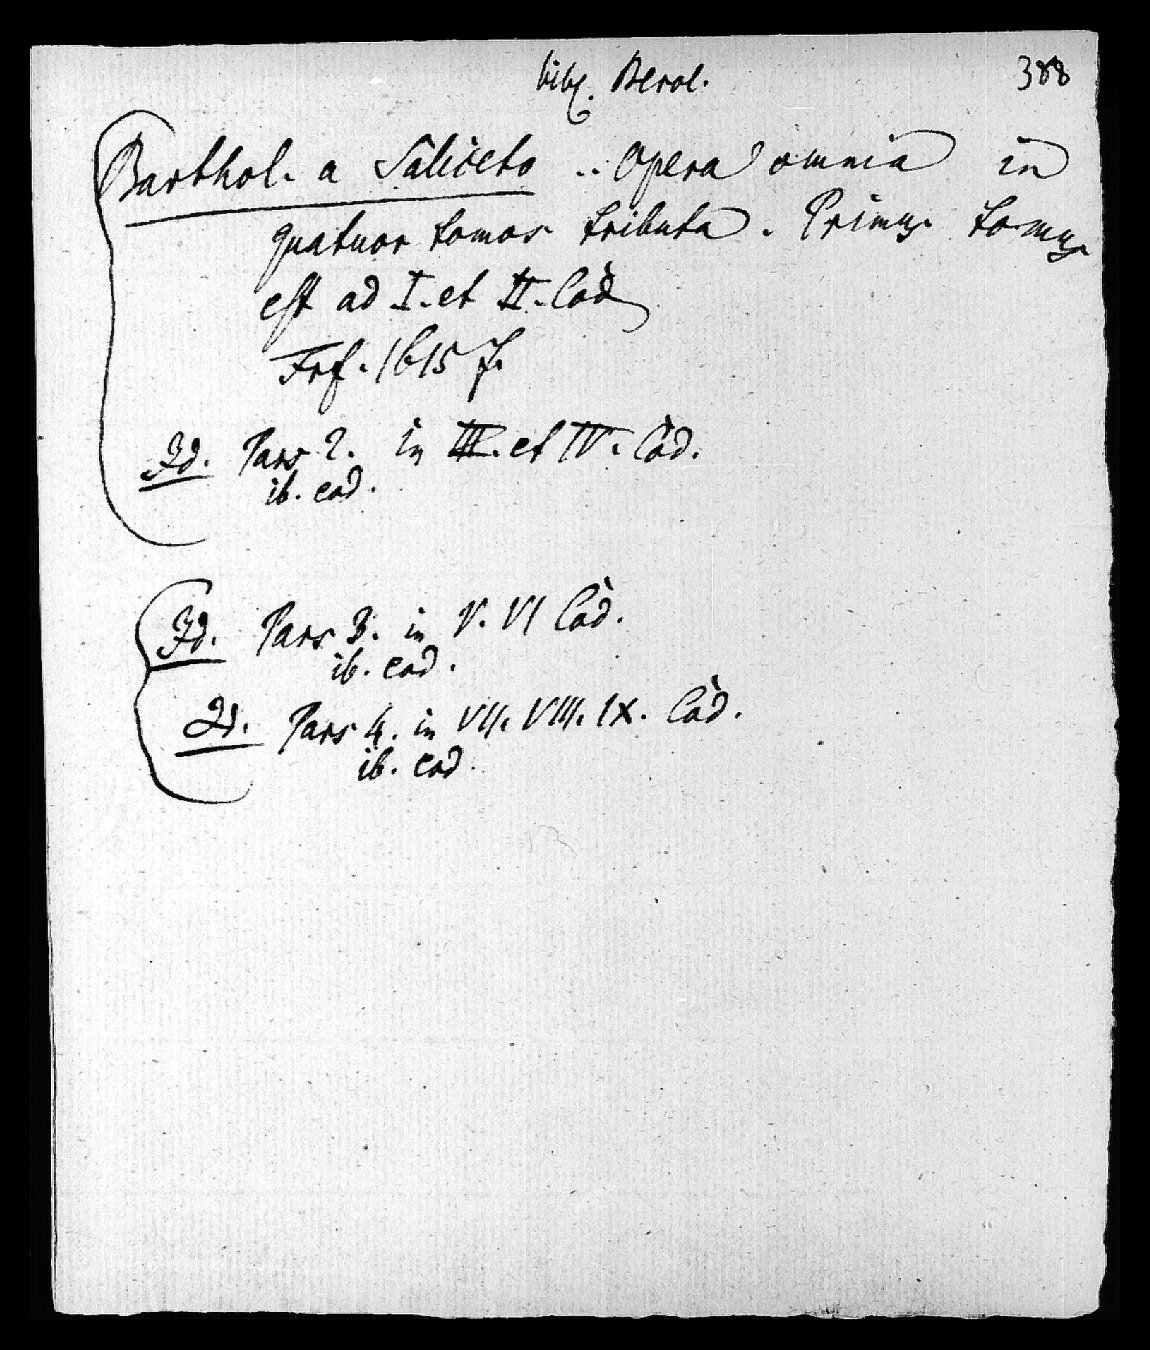 bibl. Berol. 388
Barthol. a Saliceto .. Opera omnia in
quatuor tomos tributa. Primus tomus
est ad I. et II. Cod.
Frf. 1615 f.
Id. Pars 2. in III. et IV. Cod.
ib. eod.
Id. Pars 3. in V. VI Cod.
ib. eod.
Id. Pars 4. in VII. VIII. IX. Cod.
ib. eod.